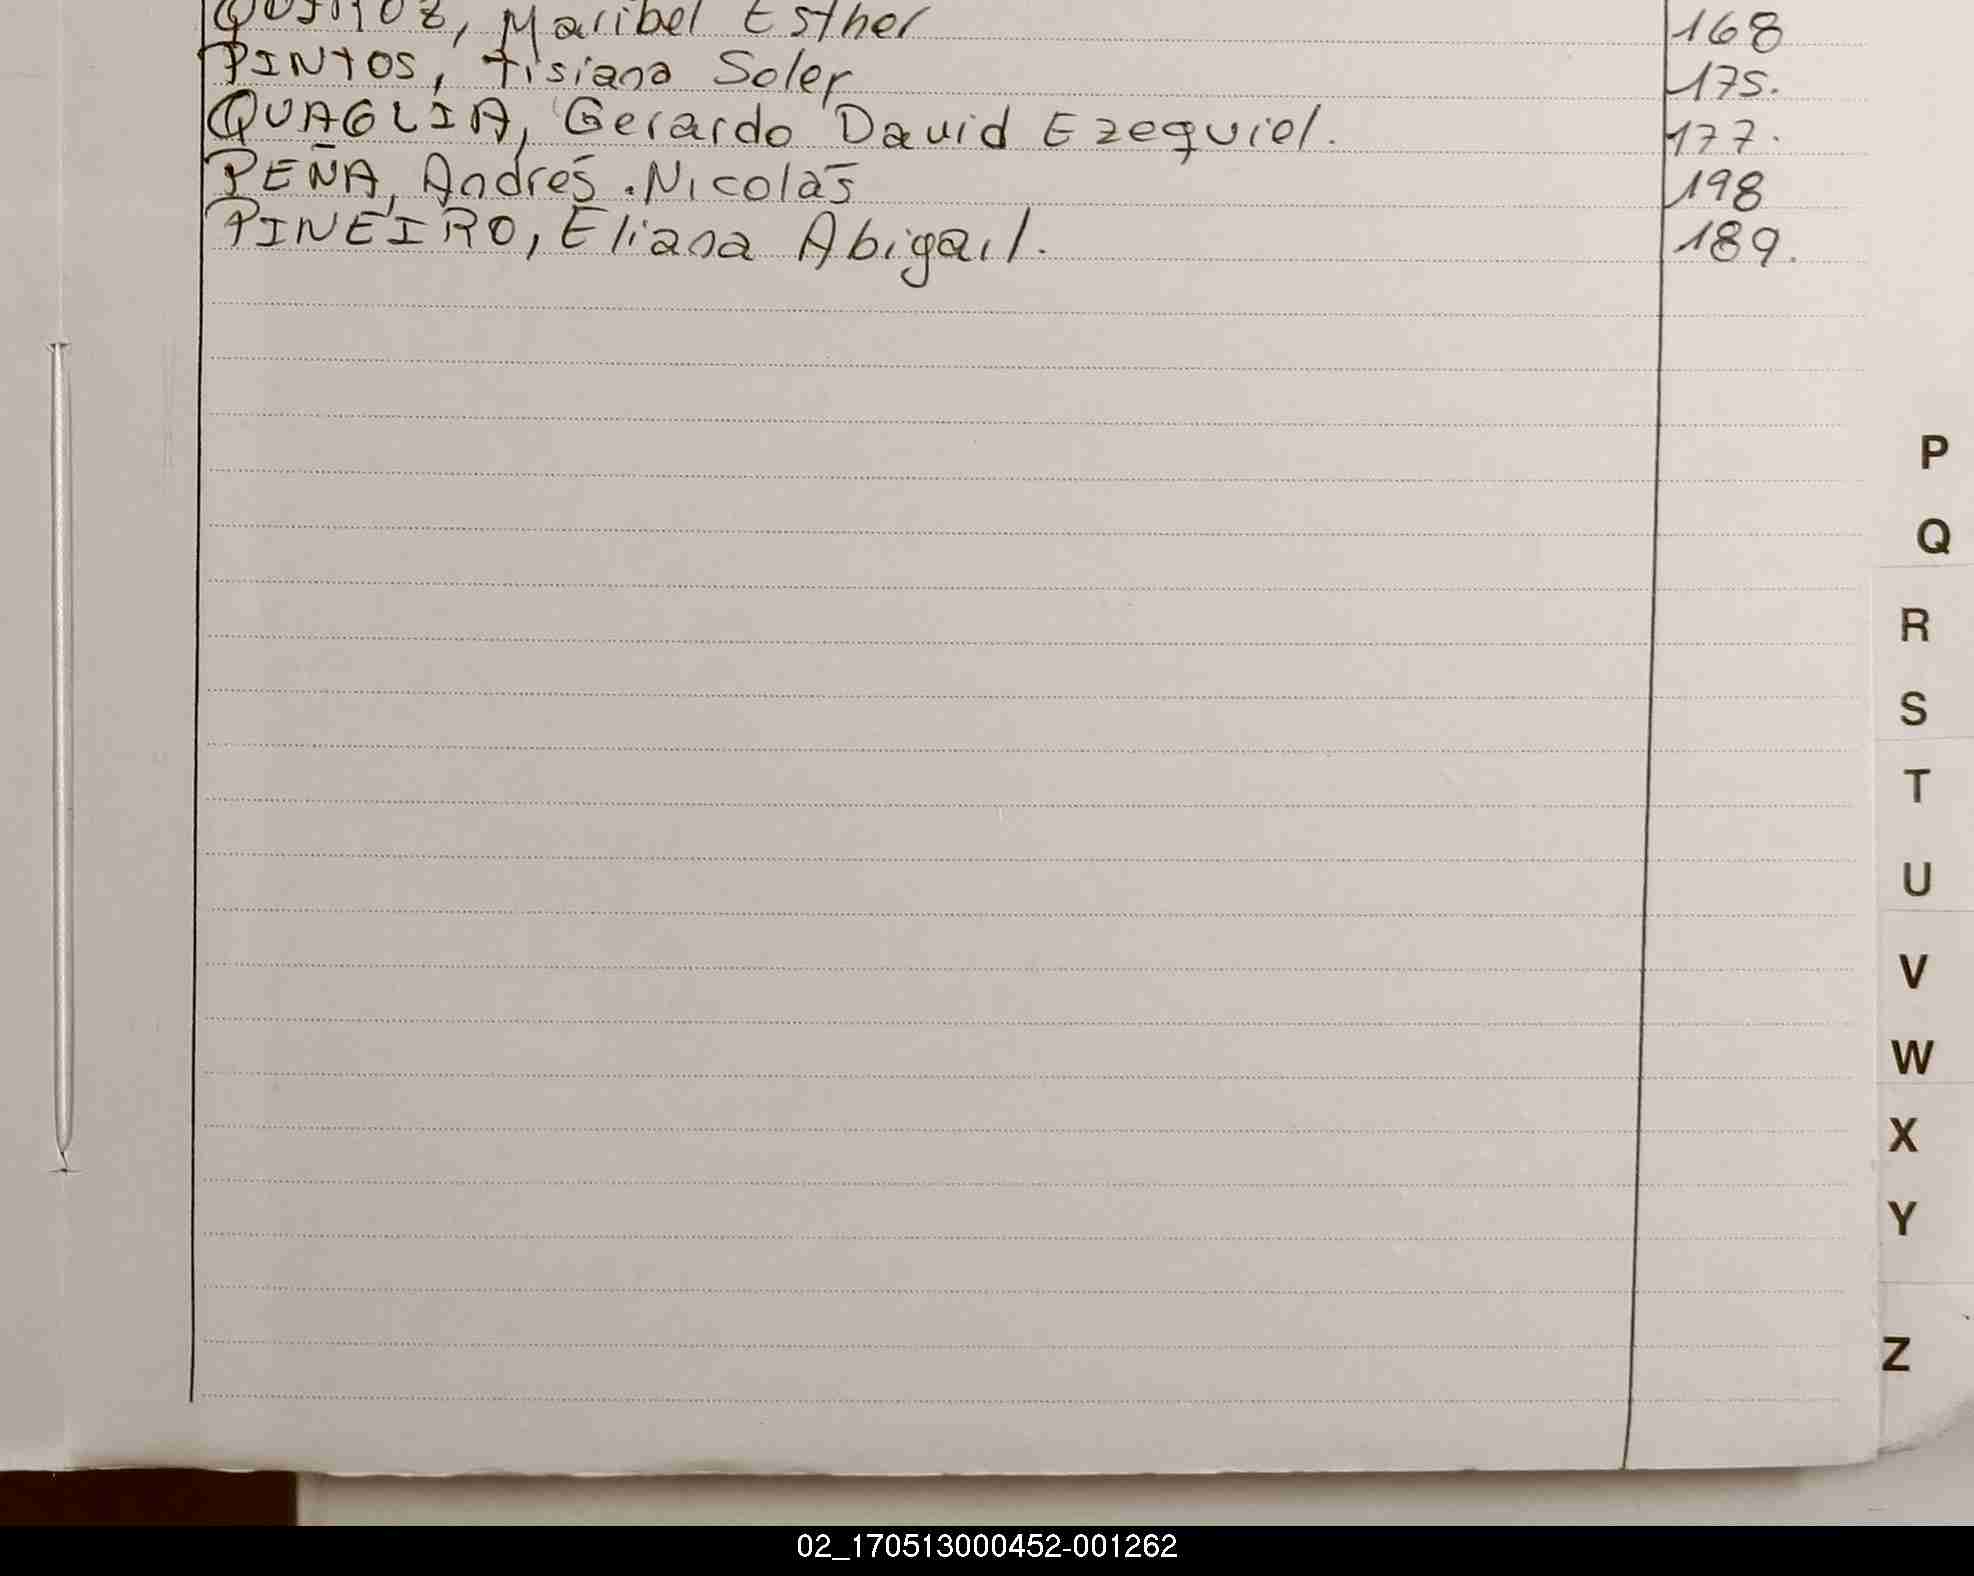 Maribel Esther 168
PINTOS, tisiana Soler 175.
QUAGLIA, Gerardo David Ezequiel. 177.
PEÑA, Andrés. Nicolás 198
PINEIRO, Eliana Abigail. 189.
P
Q
R
S
T
U
V
W
X
Y
Z
02_170513000452-001262